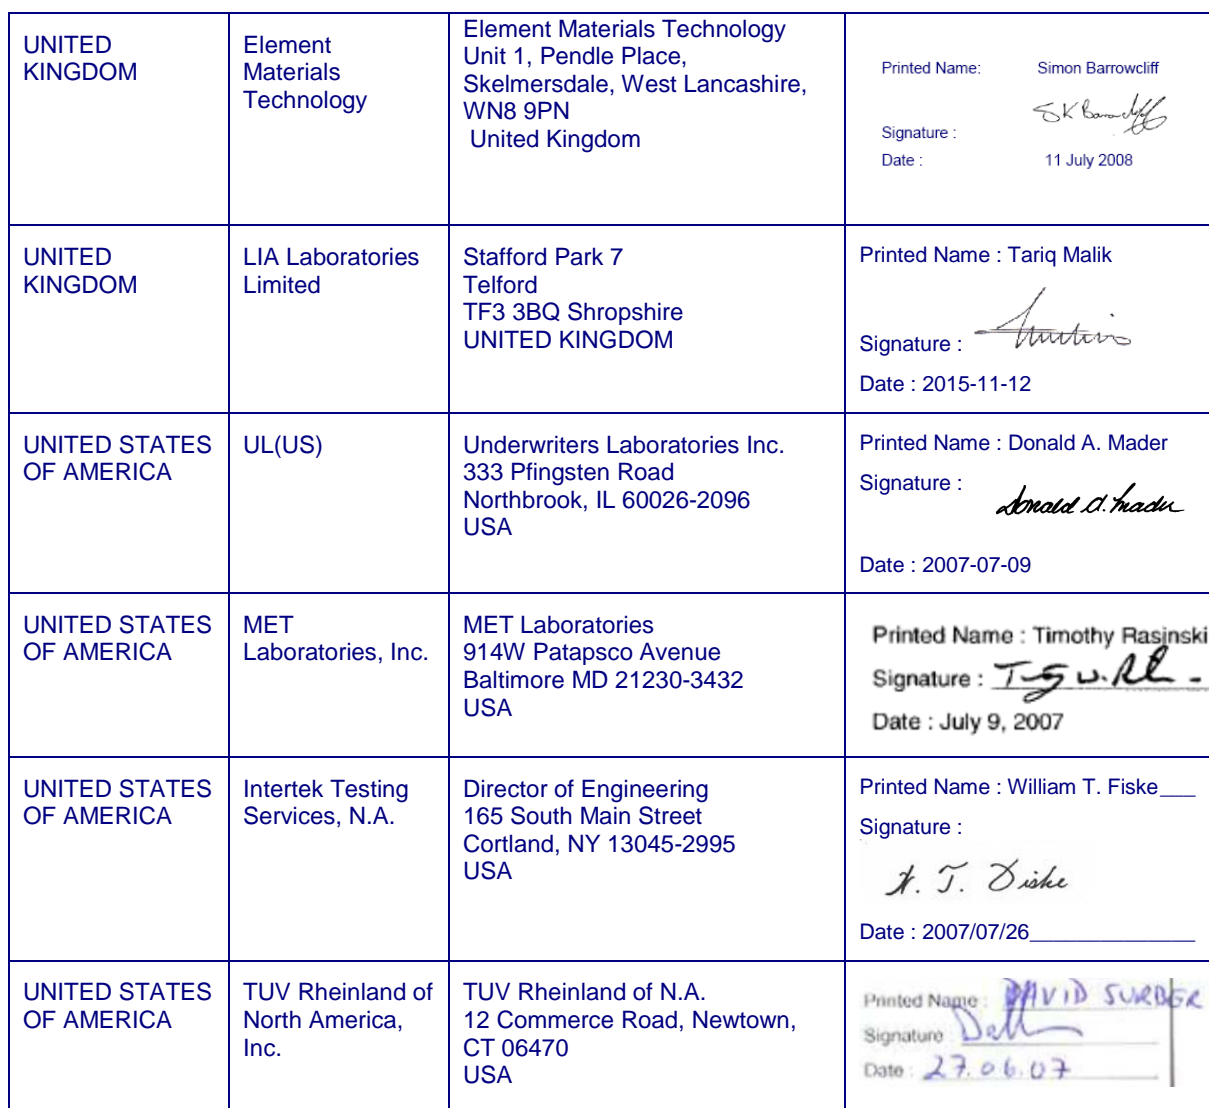 UNITED
KINGDOM
Element
Materials
Technology
Element Materials Technology
Unit 1, Pendle Place,
Skelmersdale, West Lancashire,
WN8 9PN
United Kingdom
Printed Name: Simon Barrowcliff
SK Barrowcliff
Signature :
Date : 11 July 2008
UNITED
KINGDOM
LIA Laboratories
Limited
Stafford Park 7
Telford
TF3 3BQ Shropshire
UNITED KINGDOM
Printed Name : Tariq Malik
Signature :
Date : 2015-11-12
UNITED STATES
OF AMERICA
UL(US)
Underwriters Laboratories Inc.
333 Pfingsten Road
Northbrook, IL 60026-2096
USA
Printed Name : Donald A. Mader
Signature :
Donald A. Mader
Date : 2007-07-09
UNITED STATES
OF AMERICA
MET
Laboratories, Inc.
MET Laboratories
914W Patapsco Avenue
Baltimore MD 21230-3432
USA
Printed Name : Timothy Rasinski
Signature :
Date : July 9, 2007
UNITED STATES
OF AMERICA
Intertek Testing
Services, N.A.
Director of Engineering
165 South Main Street
Cortland, NY 13045-2995
USA
Printed Name : William T. Fiske___
Signature :
W. T. Fiske
Date : 2007/07/26______________
UNITED STATES
OF AMERICA
TUV Rheinland of
North America,
Inc.
TUV Rheinland of N.A.
12 Commerce Road, Newtown,
CT 06470
USA
Printed Name : DAVID SURBER
Signature
Date : 27.06.07